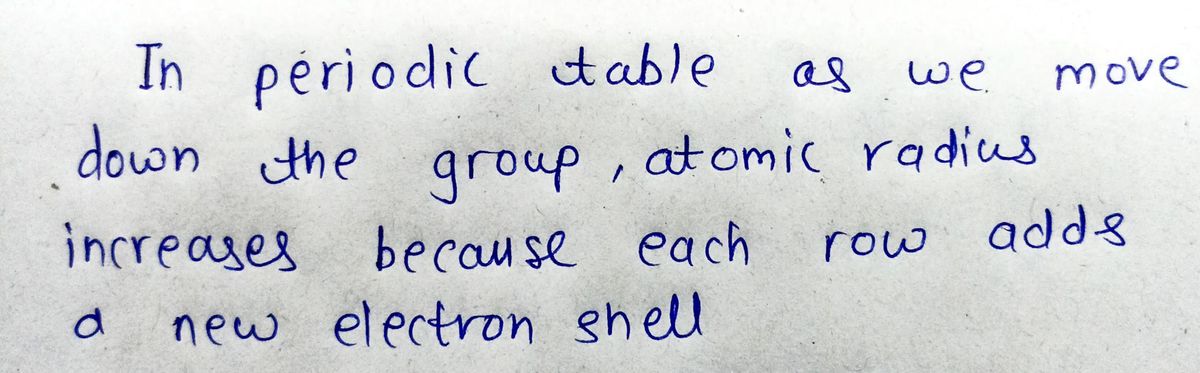 In periodic table as we move
down the group, atomic radius
increases because each row adds
a new electron shell